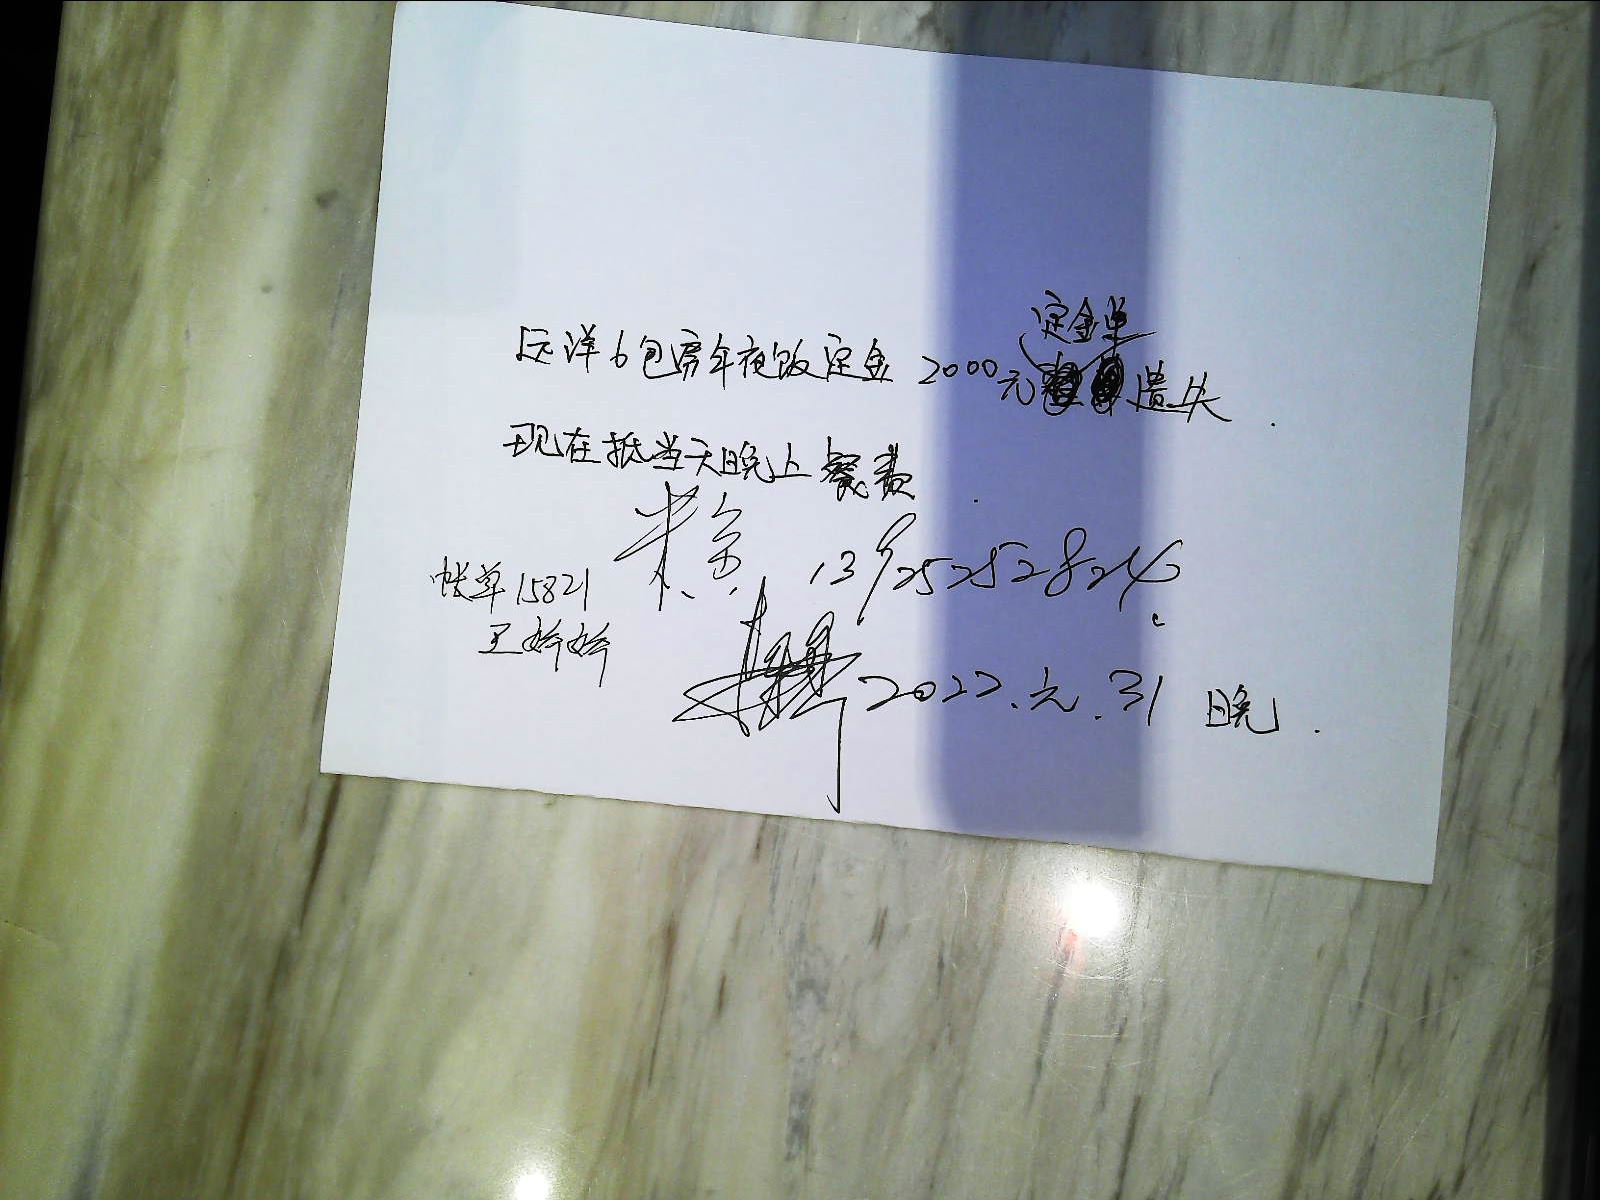 远洋6包房年夜饭定金2000元定金单遗失.
现在抵当天晚上餐费.
13925252824
帐单15821
王娇娇
2022.元.31 晚.